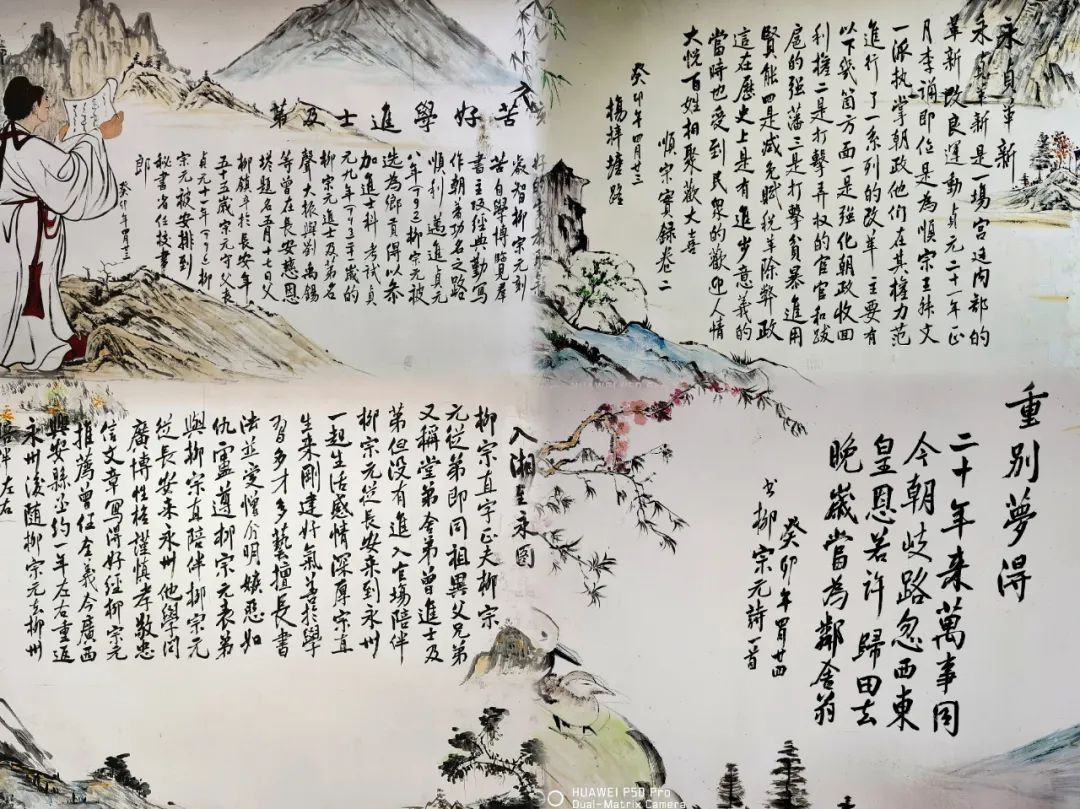 永貞革新
永貞革新是一場宮廷内部的
革新改良運動貞元二十一年正
月李誦即位是為順宗王叔文
一派执掌朝政他们在其權力范
進行了一系列的改革主要有
以下幾箇方面一是强化朝政收回
利權二是打擊弄权的宦官和跋
扈的强藩三是打擊貪暴進用
賢能四是减免賦税革除弊政
這在歷史上是有進步意義的
當時也受到民衆的歡迎人情
大悦百姓相聚歡大喜
順宗實録卷二
癸卯年四月廿三
楊梓塘路
苦好學進士及第
入
敏智柳宗元刻
苦自學博覧羣
書主攻經典勤寫
作朝着功名之路
順利邁進貞元
八年(792)柳宗元被
選為鄉貢得以参
加進士科考試貞
元九年(793)二十一歲的
柳宗元進士及第名
聲大振與劉禹錫
等曾在長安慈恩
塔題名五月十七日父
柳鎮卒於長安年
五十五歲宗元守父喪
貞元十一年(795)柳
宗元被安排到
秘書省任校書
郎
癸卯年四月廿二
重别夢得
二十年来萬事同
今朝歧路忽西東
皇恩若许歸田去
晚歲當為鄰舍翁
癸卯年四月廿四
书柳宗元詩一首
入湘至永圖
柳宗直字正夫柳宗
元従弟即同祖異父兄弟
又稱堂弟舍弟曾進士及
第但没有進入官場陪伴
柳宗元從長安来到永州
一起生活感情深厚宗直
生来刚建好氣善於學
習多才多藝擅長書
法並爱憎分明嫉惡如
仇盧遵柳宗元表弟
與柳宗直陪伴柳宗元
従長安来永州他學问
廣博性格謹慎孝敬忠
信文章寫得好經柳宗元
推薦曾任全義今廣西
興安縣丞约一年左右重返
永州後随柳宗元去柳州
陪伴左右
HUAWEI P50 Pro
Dual-Matrix Camera